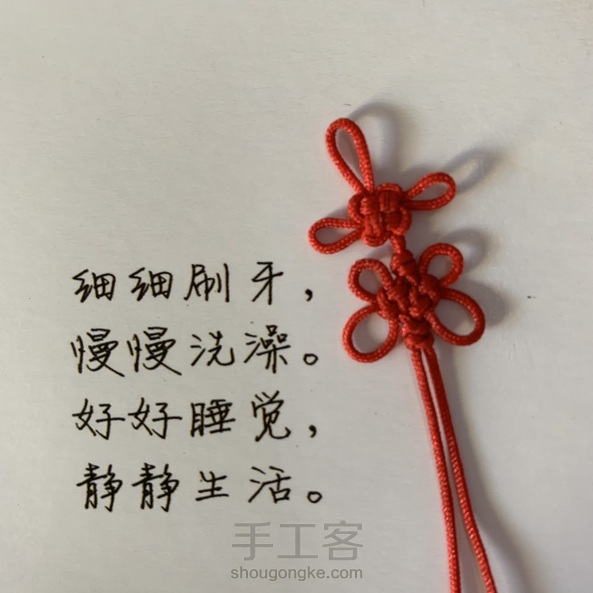 细细刷牙，
慢慢洗澡。
好好睡觉，
静静生活。
手工客
shougongke.com